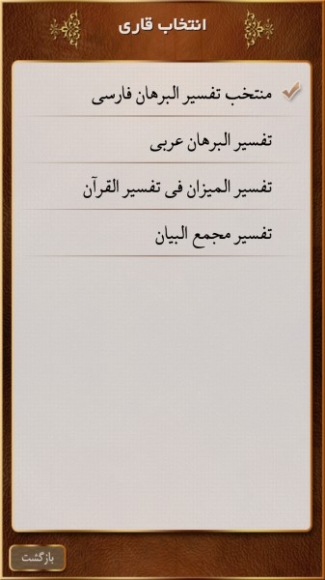 انتخاب قاری
منتخب تفسیر البرهان فارسی
تفسیر البرهان عربی
تفسیر المیزان فی تفسیر القرآن
تفسیر مجمع البیان
بازگشت